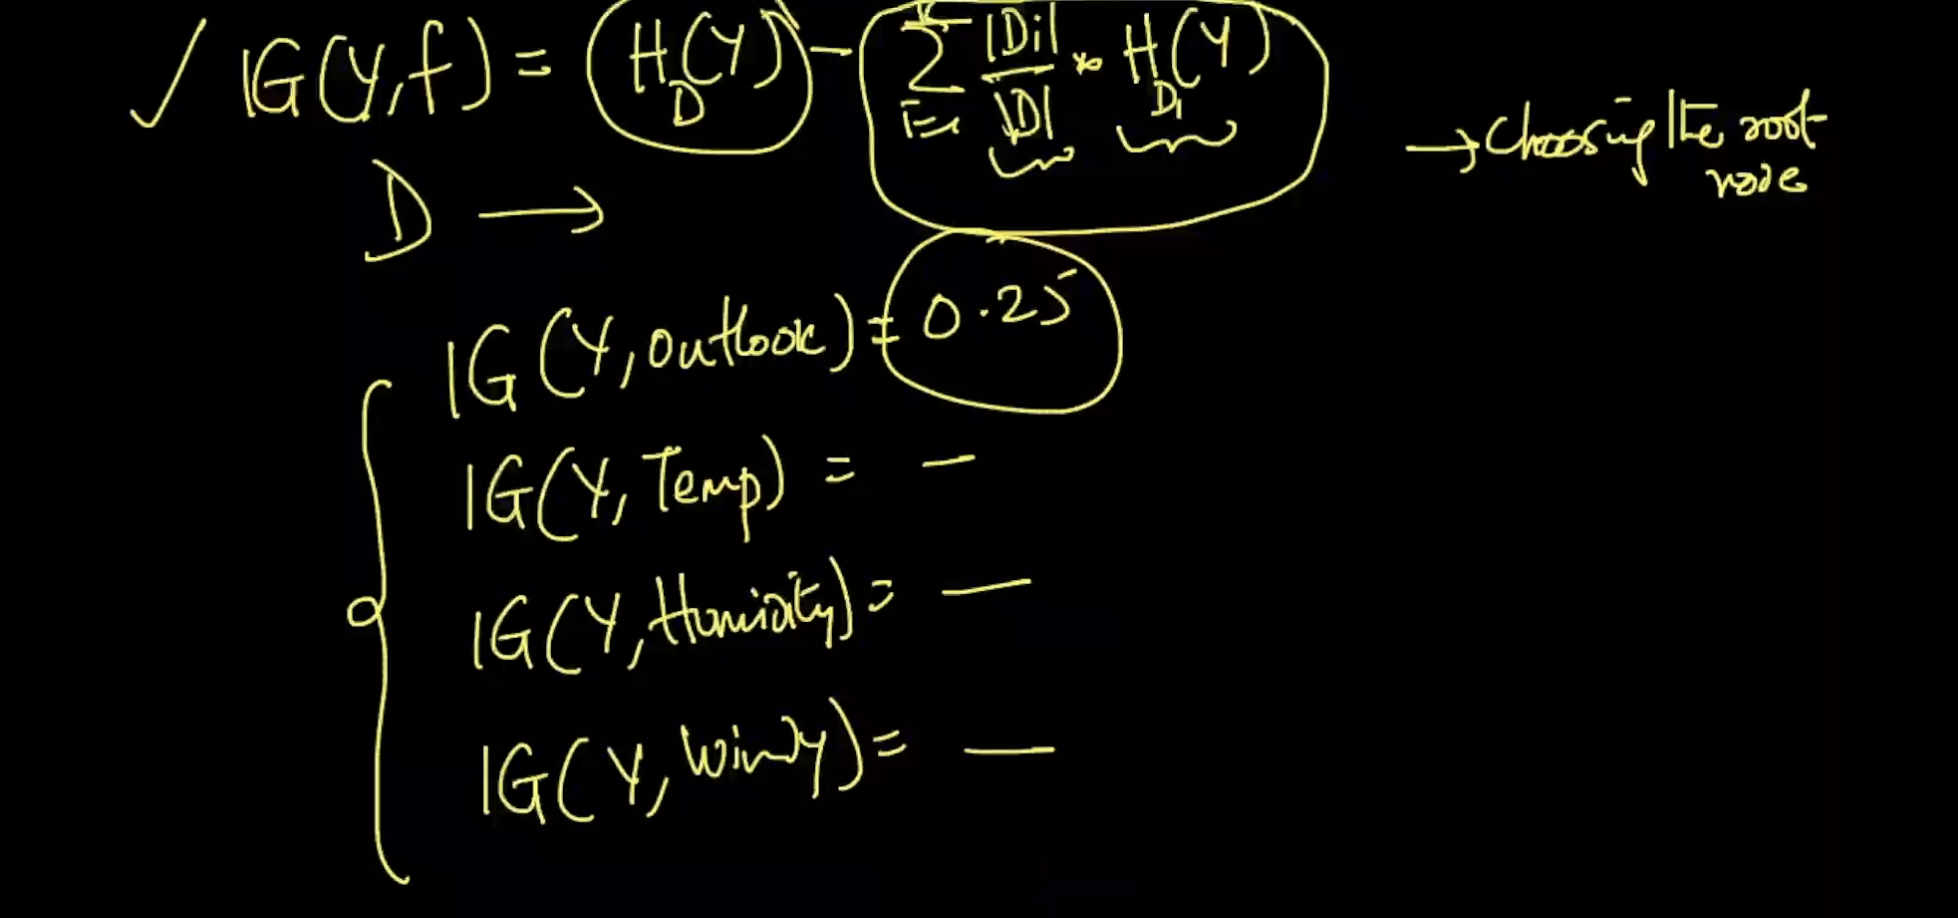 ✓ IG(Y,f) = H_D(Y) - Σ_{i=1}^{k} |Di|/|D| * H_{Di}(Y)
→ Choosing the root
node
D →
IG(Y, outlook) = 0.25
IG(Y, Temp) = —
IG(Y, Humidity) = —
IG(Y, Windy) = —